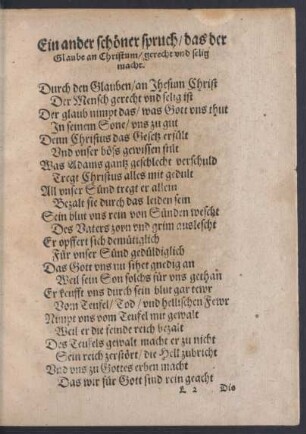 Ein ander schöner spruch/ das der
Glaube an Christum/ gerecht vnd selig
macht.
Durch den Glauben/ an Jhesum Christ
Der Mensch gerecht vnd selig ist
Der glaub nimpt das/ was Gott vns thut
In seinem Sone/ vns zu gut
Denn Christus das Gesetz erfült
Vnd vnser böss gewissen stilt
Was Adams gantz geschlecht verschuld
Tregt Christus alles mit gedult
All vnser Sünd tregt er allein
Bezalt sie durch das leiden sein
Sein blut vns rein von Sünden wescht
Des Vaters zorn vnd grim auslescht
Er opffert sich demütiglich
Für vnser Sünd gedüldiglich
Das Gott vns nu sihet gnedig an
Weil sein Son solchs für vns gethan
Er keufft vns durch sein blut gar tewr
Vom Teufel/ Tod/ vnd hellischen Fewr
Nimpt vns vom Teufel mit gewalt
Weil er die feinde reich bezalt
Des Teufels gewalt macht er zu nicht
Sein reich zerstört/ die Hell zubricht
Vnd vns zu Gottes erben macht
Das wir für Gott sind rein geacht
L 2 Die